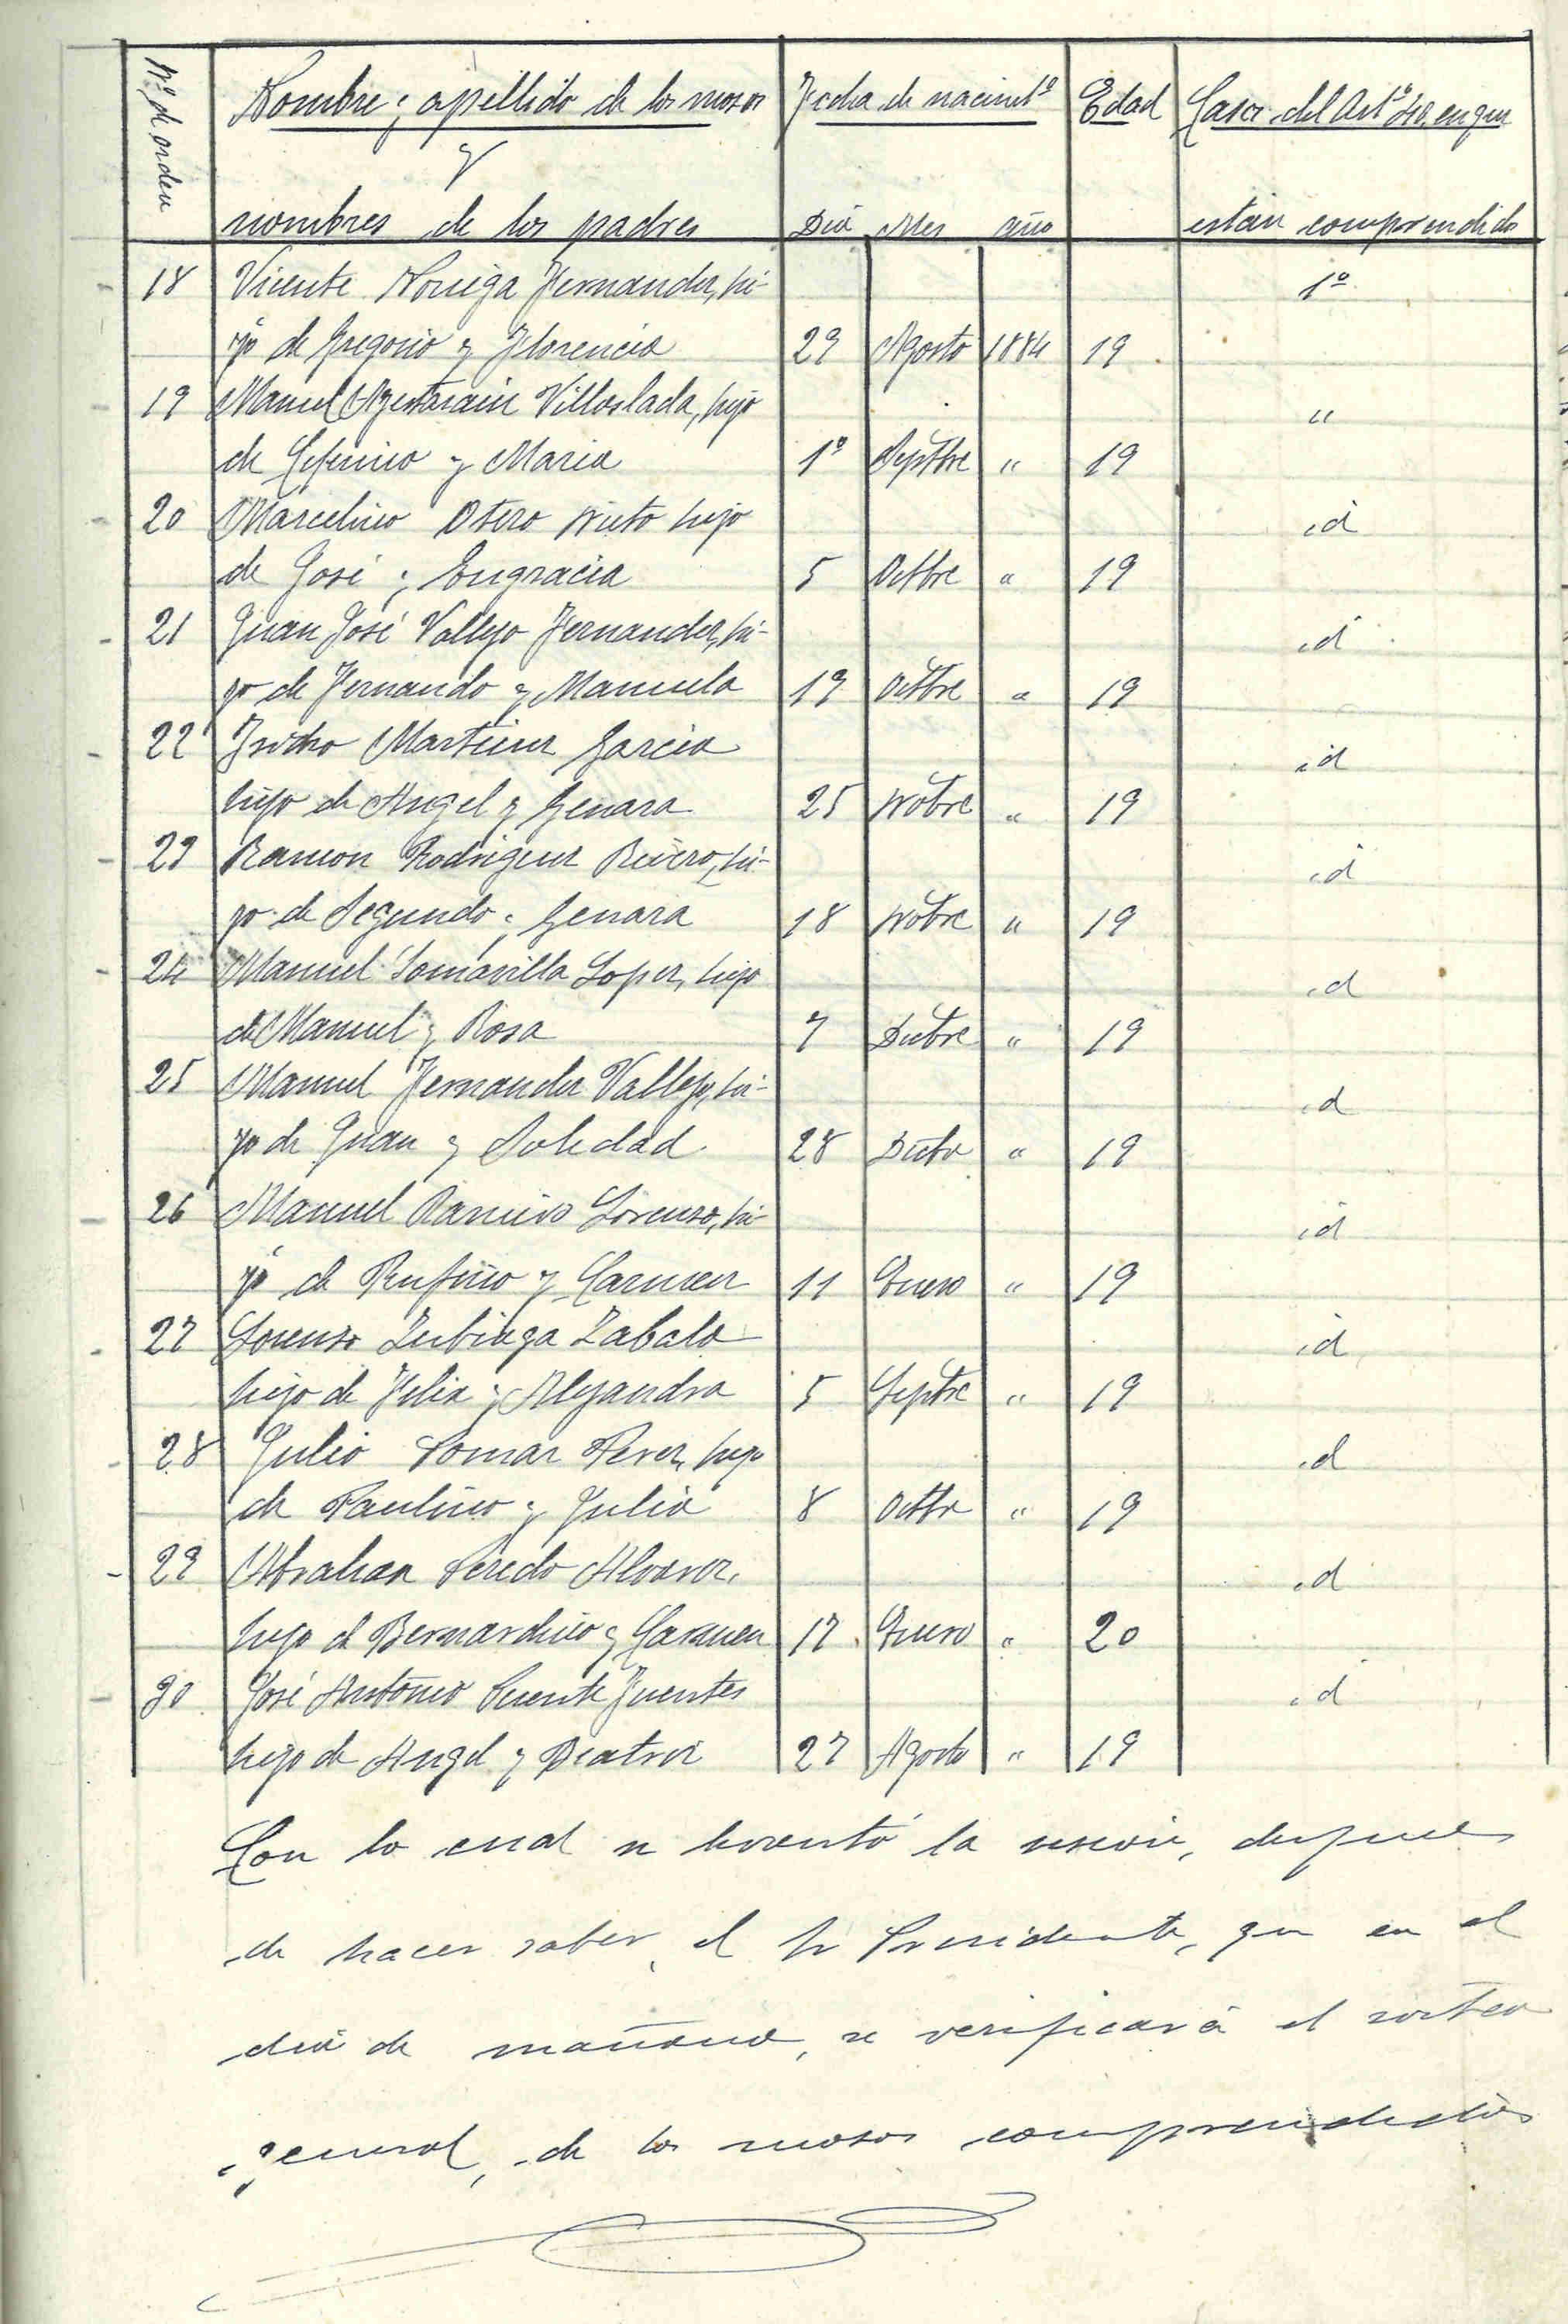 Nº de orden
Nombre y apellido de los mozos Fecha de nacimtº Edad Casos del Artº 40 en que
y
nombres de los padres Dia Mes año están comprendidos
18 Vicente Noriega Fernandez, hi- 1º
jo de Gregorio y Florencia 29 Agosto 1884 19
19 Manuel Villoslada, hijo "
de Ceferino y Maria 1º Septbre " 19
20 Marcelino Otero Nieto hijo id
de José y Engracia 5 Octbre " 19
21 Juan José Vallejo Fernandez, hi- id
jo de Fernando y Manuela 19 Octbre " 19
22 Isidro Martinez Garcia id
hijo de Angel y Genara 25 Nobre " 19
23 Ramon Rodriguez Rivero, hi- id
jo de Segundo y Genara 18 Nobre " 19
24 Manuel Somavilla Lopez, hijo id
de Manuel y Rosa 7 Dicbre " 19
25 Manuel Fernandez Vallejo, hi- id
jo de Juan y Soledad 28 Dicbr " 19
26 Manuel Ramiro Lorenzo, hi- id
jo de Rufino y Carmen 11 Enero " 19
27 Lorenzo Zubiaga Zabala id
hijo de Felix y Alejandra 5 Septre " 19
28 Julio Somar Perez, hijo id
de Paulino y Julia 8 Octbr " 19
29 Abrahan Peredo Alvarez, id
hijo de Bernardino y Carmen 17 Enero " 20
30 José Antonio Puente Fuentes id
hijo de Angel y Beatriz 27 Agosto " 19
Con lo cual se levantó la sesión, despues
de hacer saber, el Sr Presidente, que en el
dia de mañana, se verificará el sorteo
general, de los mozos comprendidos